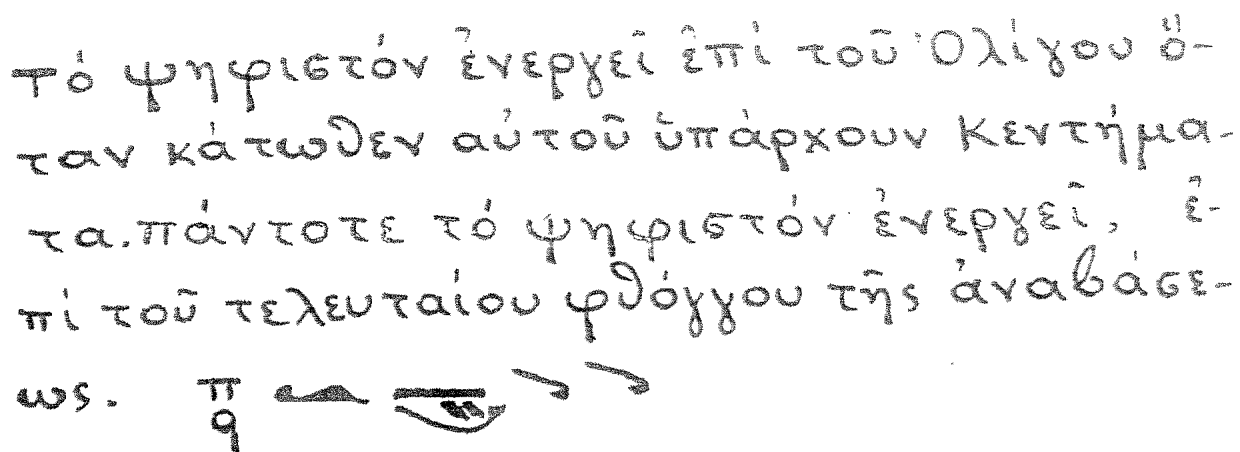 Τό ψηφιστόν ἐνεργεῖ ἐπί τοῦ Ὀλίγου ὅ-
ταν κάτωθεν αὐτοῦ ὑπάρχουν Κεντήμα-
τα. πάντοτε τό ψηφιστόν ἐνεργεῖ, ἐ-
πί τοῦ τελευταίου φθόγγου τῆς ἀναβάσε-
ως. π q